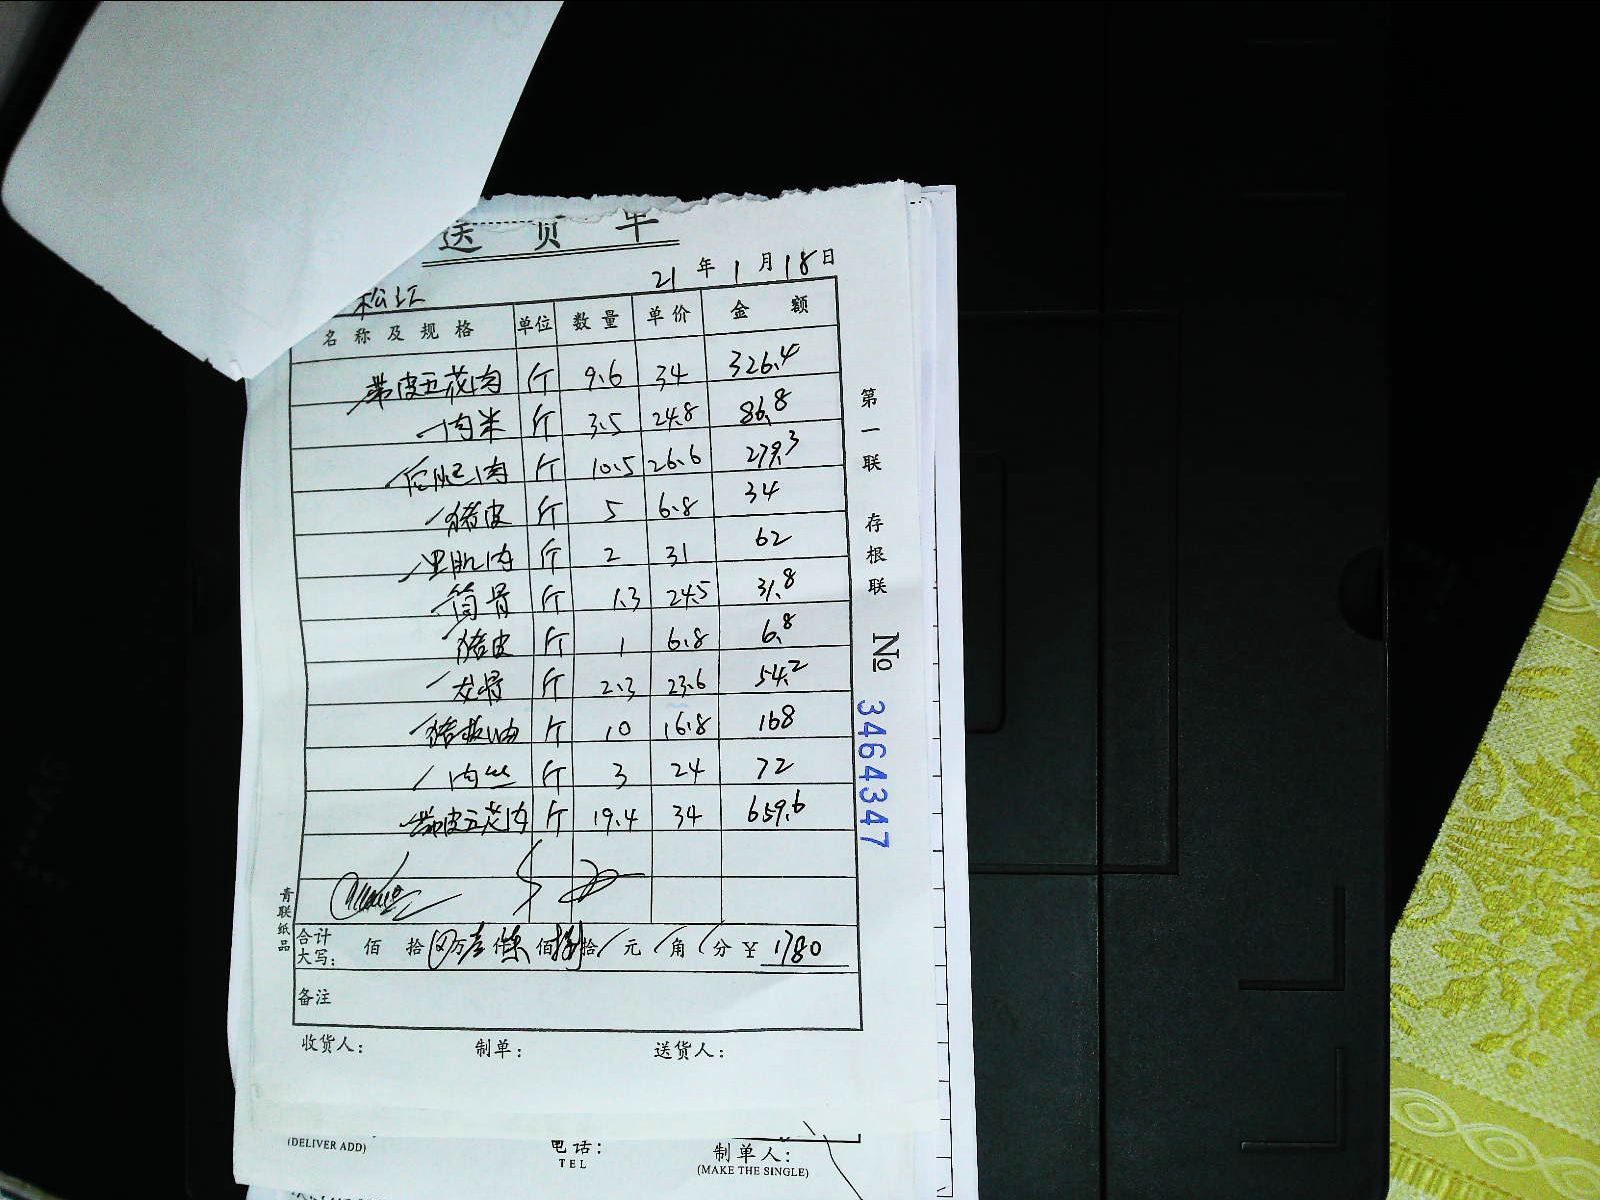 送货单
21年1月18日
松江
名称及规格 单位 数量 单价 金额
带皮五花肉 斤 9.6 34 326.4
肉米 斤 3.5 24.8 86.8
后腿肉 斤 10.5 26.6 279.3
猪皮 斤 5 6.8 34
里肌肉 斤 2 31 62
筒骨 斤 1.3 24.5 31.8
猪皮 斤 1 6.8 6.8
龙骨 斤 2.3 23.6 54.2
猪板油 斤 10 16.8 168
肉丝 斤 3 24 72
带皮五花肉 斤 19.4 34 659.6
合计大写： 佰 拾 万 仟 佰 拾 元 角 分 ￥ 1780
备注
收货人： 制单： 送货人：
第一联 存根联
№ 3464347
青联纸品
(DELIVER ADD) 电话： 制单人：
TEL (MAKE THE SINGLE)